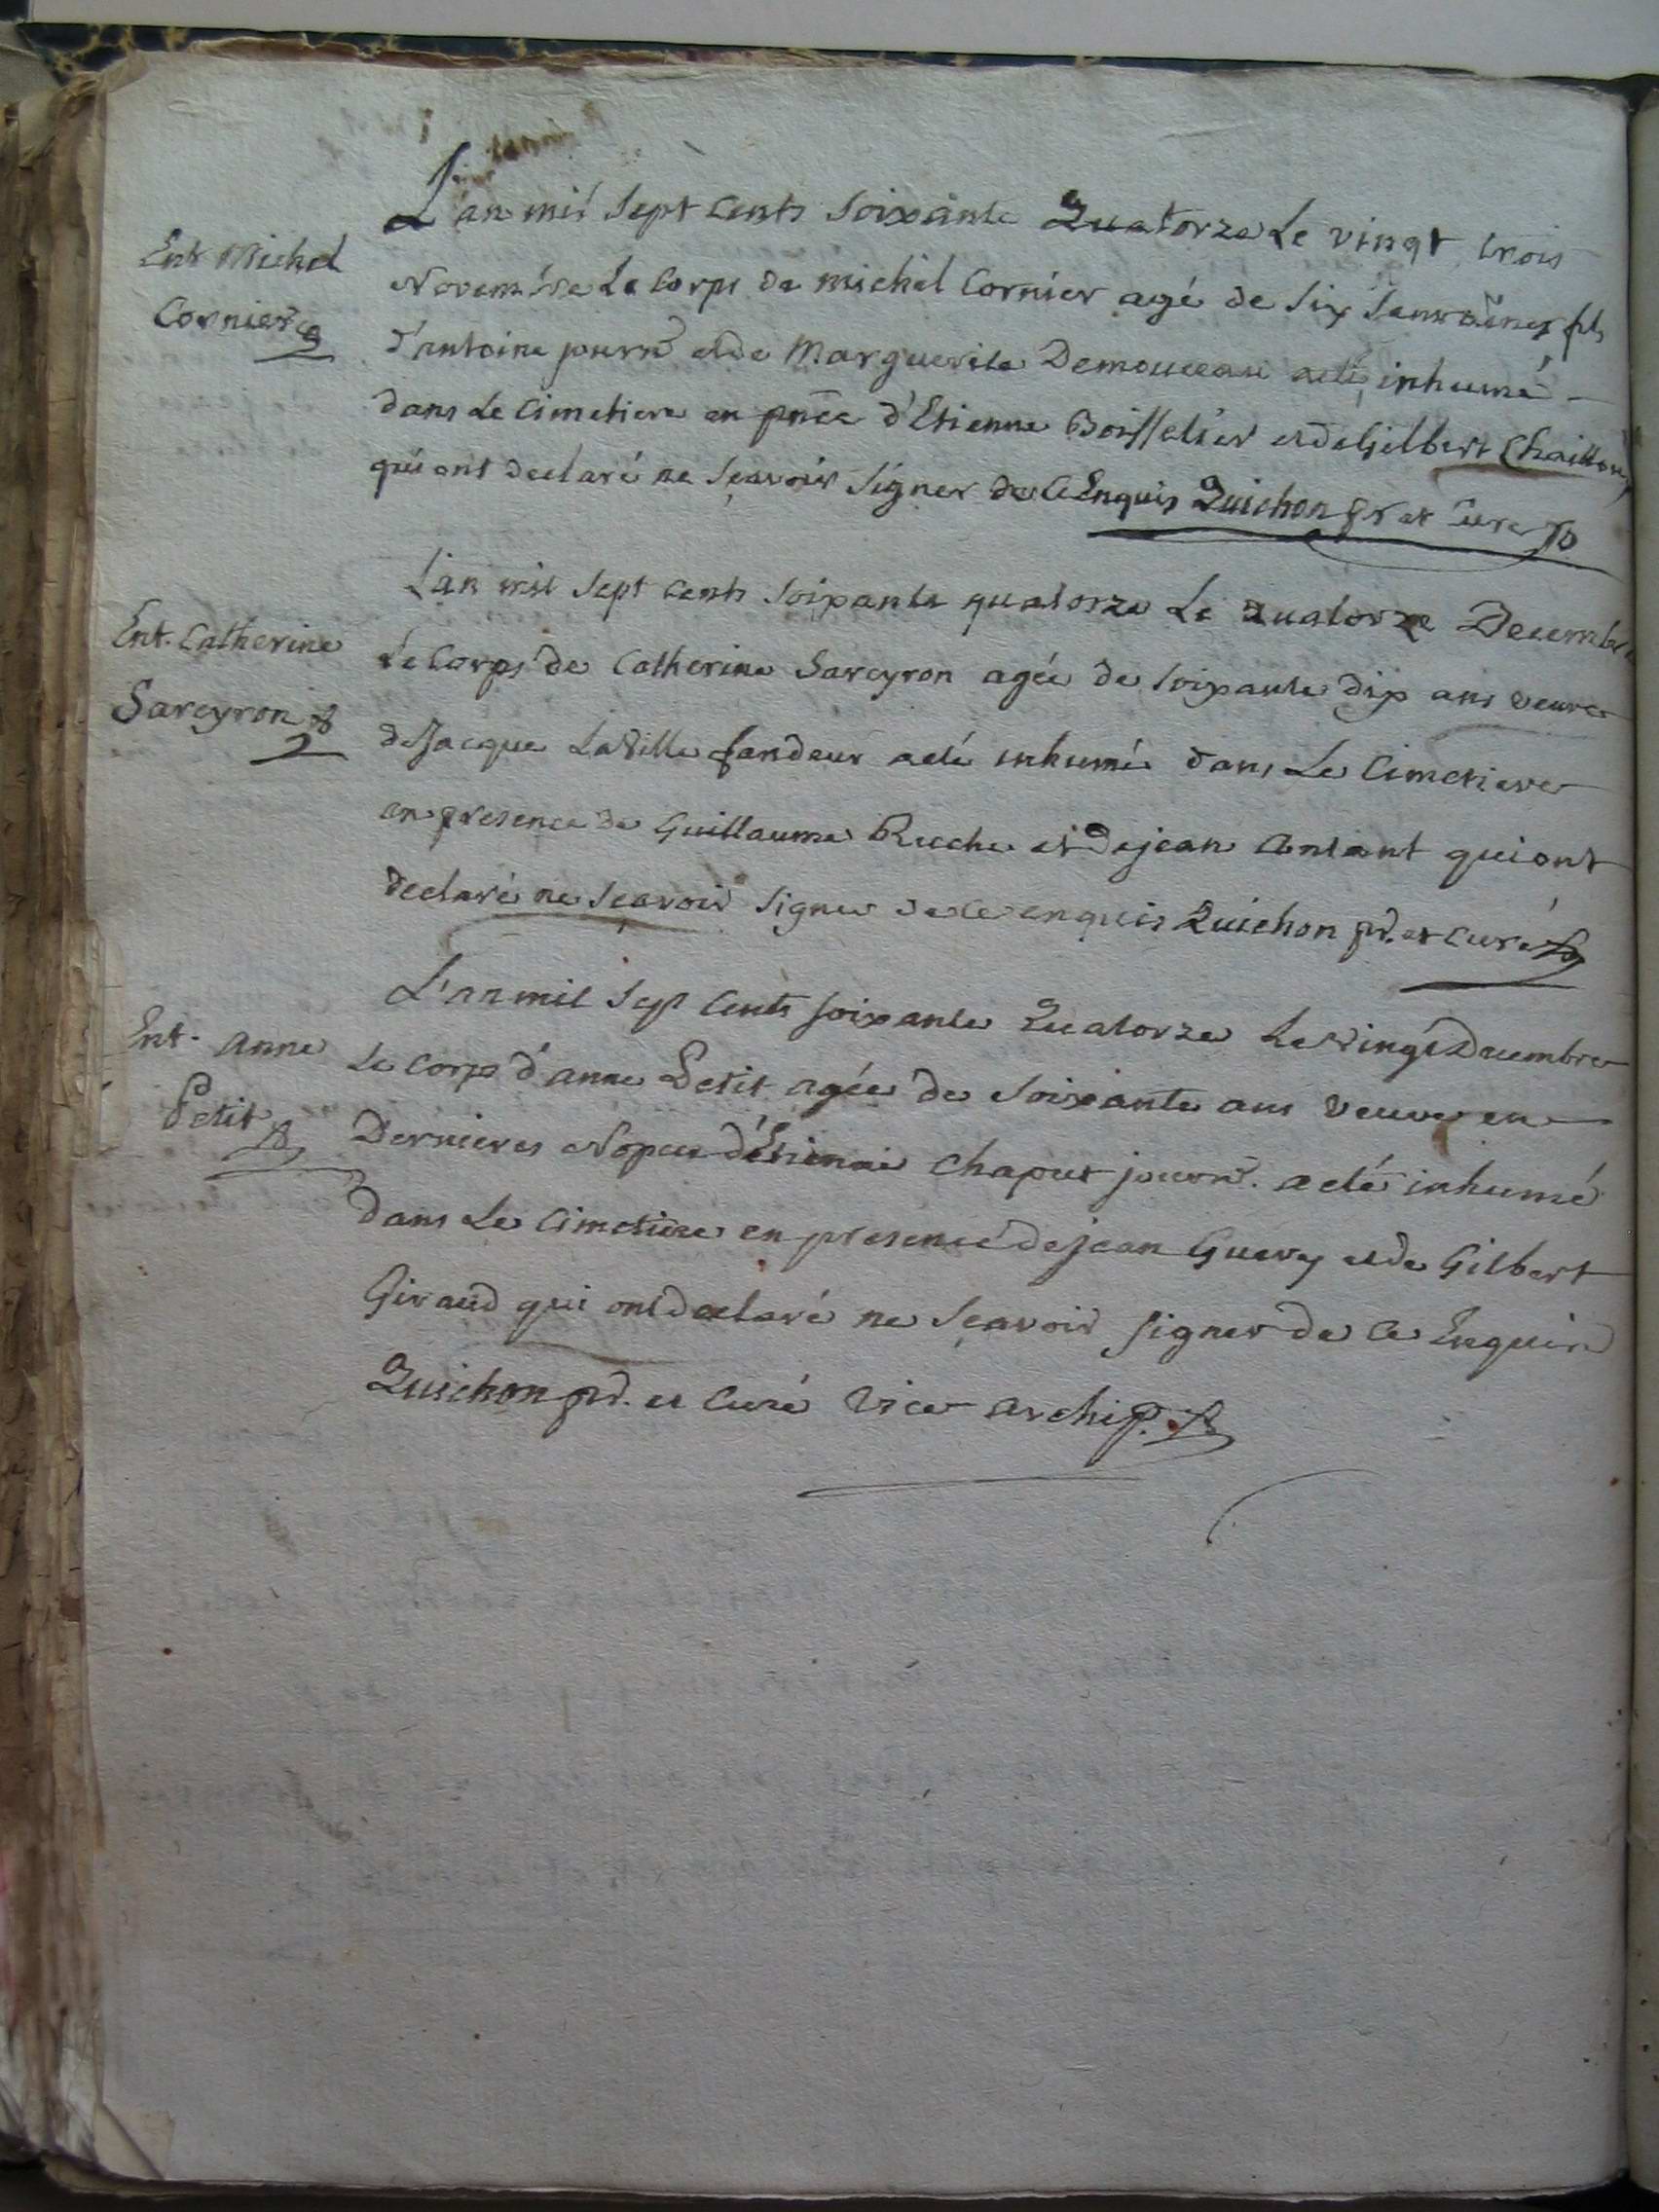 L'an mil sept cents soixante Quatorze Le vingt trois
Ent Michel
Novembre Le Corps de michel Cornier agé de six semaines fils
Cornier
d'antoine journ. et de Marguerite Demouceau a eté inhumé
dans Le Cimetiere en pnce d'Etienne Boisselier et de Gilbert Chaillou
qui ont declaré ne Sçavoir Signer de Ce Enquis Quichon pr et Curé
L'an mil Sept Cents Soixante quatorze Le quatorze Decembre
Ent. Catherine
Le Corps de Catherine Sareyron agée de soixante dix ans veuve
Sareyron
de Jacque Laville fandeur a eté inhumé dans Le Cimetiere
en presence de Guillaume Ruche et de jean qui ont
declaré ne Sçavoir Signer de Ce enquis Quichon pr. et Curé
L'an mil Sept Cents soixante Quatorze Le vingt Decembre
Ent. Anne
Le Corps d'anne Petit agée de Soixante ans Veuve en
Petit
Dernieres Nopces d'Etienne Chaput journ. a eté inhumé
dans Le Cimetiere en presence de jean Guery et de Gilbert
Giraud qui ont declaré ne Sçavoir signer de Ce Enquis
Quichon pr. et Curé Vice archip.